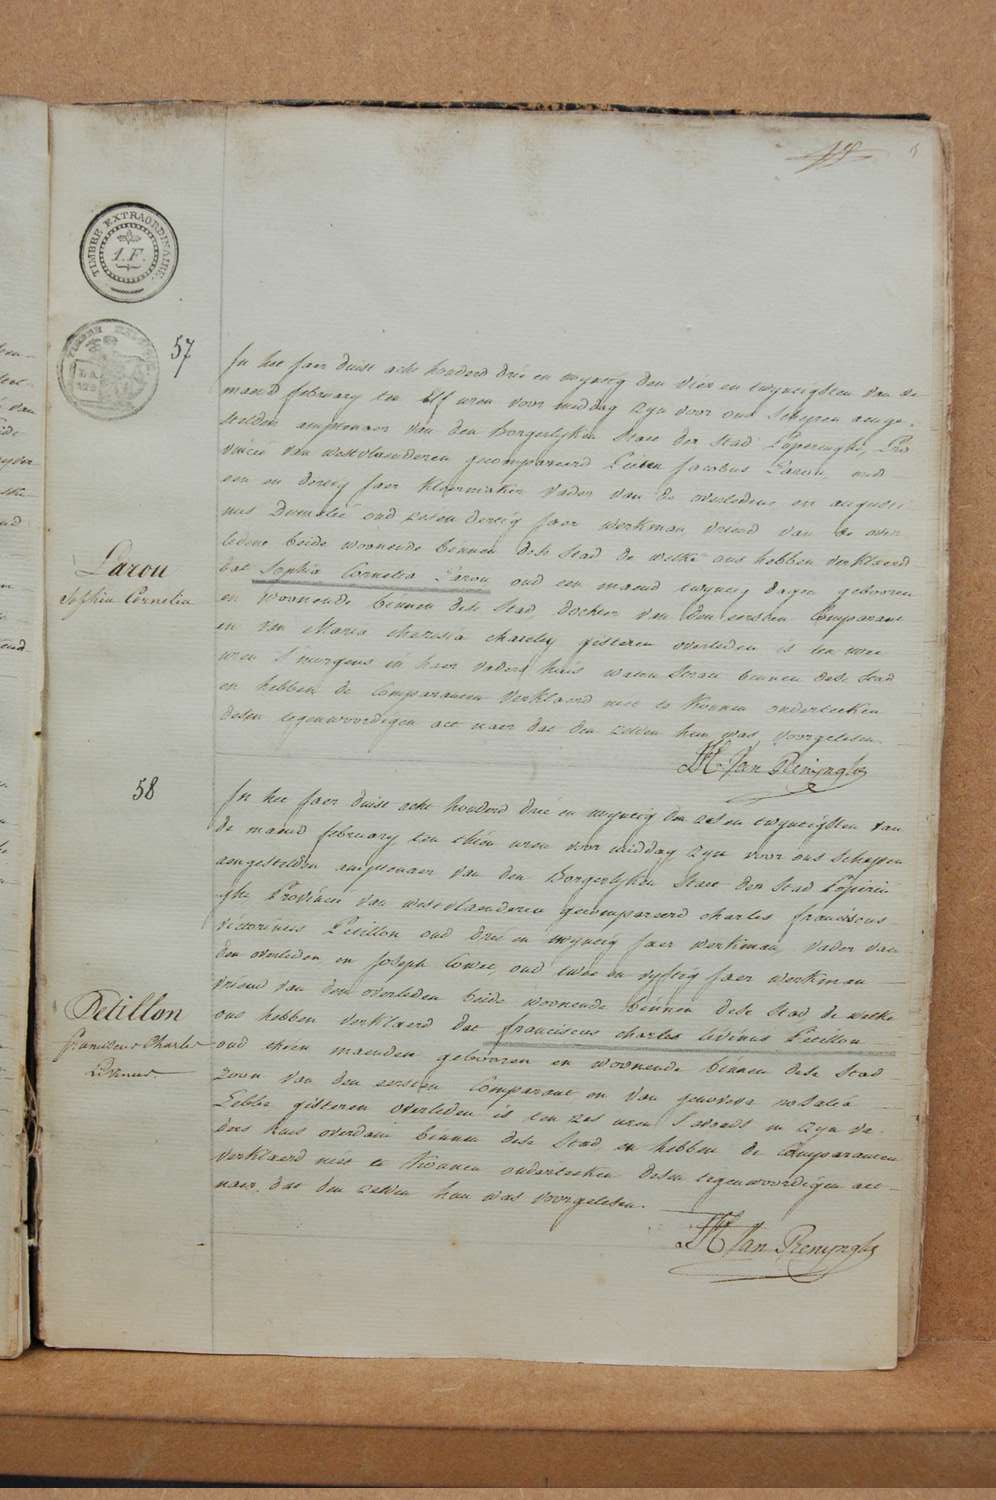 TIMBRE EXTRAORDINAIRE.
1.F.
57
In het Jaer duist acht honderd drie en vyftig den vier en twyntigsten van de
maand february ten elf uren voor middag zyn voor ons Schepen aenge-
stelden amptenaer van den Borgerlyken Staet der Stad Poperinghe, Pro
vincie van westvlaenderen gecompareerd Pieter Jacobus Larou oud
een en dertig Jaer kleermaker vader van de overledene en augusti
nus oud zesendertig Jaer werkman vriend van de over
ledene beide woonende binnen dese Stad de welke ons hebben verklaerd
dat Sophia Cornelia Larou oud een maend twyntig dagen gebooren
en woonende binnen dese Stad, dochter van den eersten Comparant
en van Maria theresia gisteren overleden is ten twee
uren S'morgens in haer vaders huis straet binnen dese Stad
en hebben de Comparanten verklaerd niet te konnen onderteeken
desen tegenwoordigen act naer dat den zelven hun was voorgelesen.
Larou
Sophia Cornelia
Van Renynghe
58
In het Jaer duist acht honderd drie en vyftig den zes en twyntigsten van
de maend february ten thien uren voor middag zyn voor ons Schepen
aengestelden amptenaer van den Borgerlyken Staet der Stad Poperin
ghe Provincie van westvlanderen gecompareerd Charles franciscus
victorinus Petillon oud drie en twyntig Jaer werkman, vader van
den overleden en Joseph Cowee, oud twee en vyftig Jaer werkman
vriend van den overleden beide woonende binnen dese Stad de welke
ons hebben verklaerd dat franciscus charles livinus Petillon
oud thien maenden gebooren en woonende binnen dese Stad
zoon van den eersten Comparant en van genoveva rosalia
Lebbe gisteren overleden is ten zes uren S'avends in zyn va-
ders huis overdam binnen dese Stad en hebben de Comparanten
verklaerd niet te konnen onderteeken desen tegenwoordigen act
naer dat den zelven hun was voorgelesen.
Petillon
franciscus Charles
Livinus
Van Renynghe